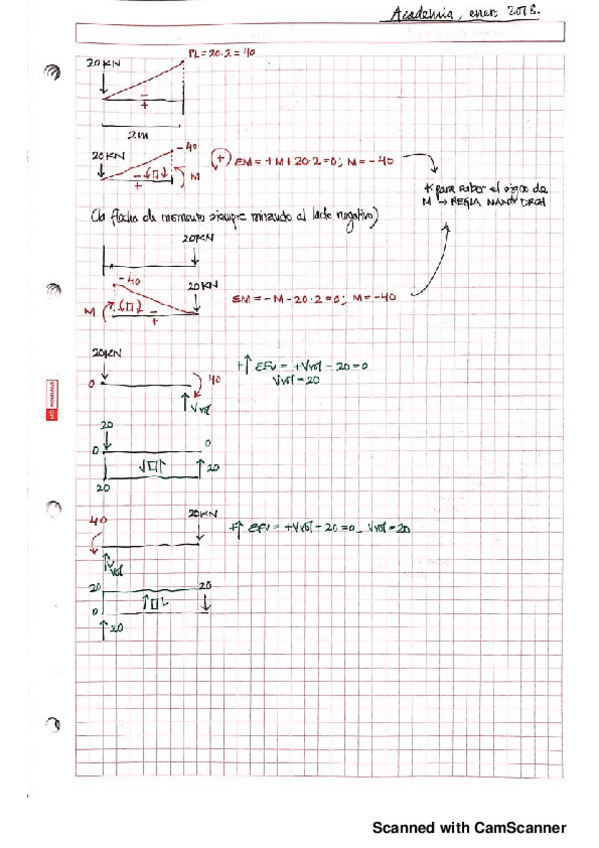 Academia, enero 2018.
PL=20·2=40
20KN
-
+
2m
-40
20KN
- +
M
+ ΣM=+M+20·2=0; M=-40
* para saber el signo de
M → REGLA MANO DRCH
(la flecha de momento siempre mirando al lado negativo)
20KN
-40
20KN
M
- +
ΣM=-M-20·2=0; M=-40
20KN
0
40
Vvol
+↑ ΣFv=+Vvol-20=0
Vvol=20
20
0
0
20
20
40
20KN
Vvol
+↑ ΣFv=+Vvol-20=0 Vvol=20
20
20
0
20
Scanned with CamScanner